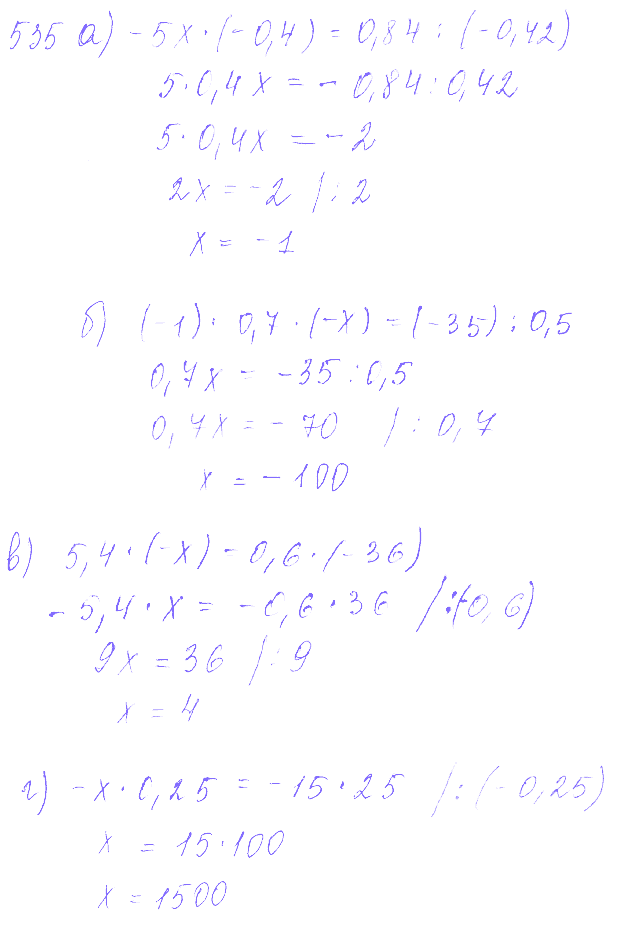 535 а) - 5x · (-0,4) = 0,84 : (-0,42)
5·0,4x = - 0,84 : 0,42
5·0,4x = -2
2x = -2 / : 2
x = -1
б) (-1) · 0,7 · (-x) = (-35) : 0,5
0,7x = -35 : 0,5
0,7x = -70 / : 0,7
x = -100
в) 5,4 · (-x) - 0,6 · (-36)
- 5,4 · x = -0,6 · 36 / : (-0,6)
9x = 36 / : 9
x = 4
г) -x · 0,25 = -15 · 25 / : (-0,25)
x = 15·100
x = 1500